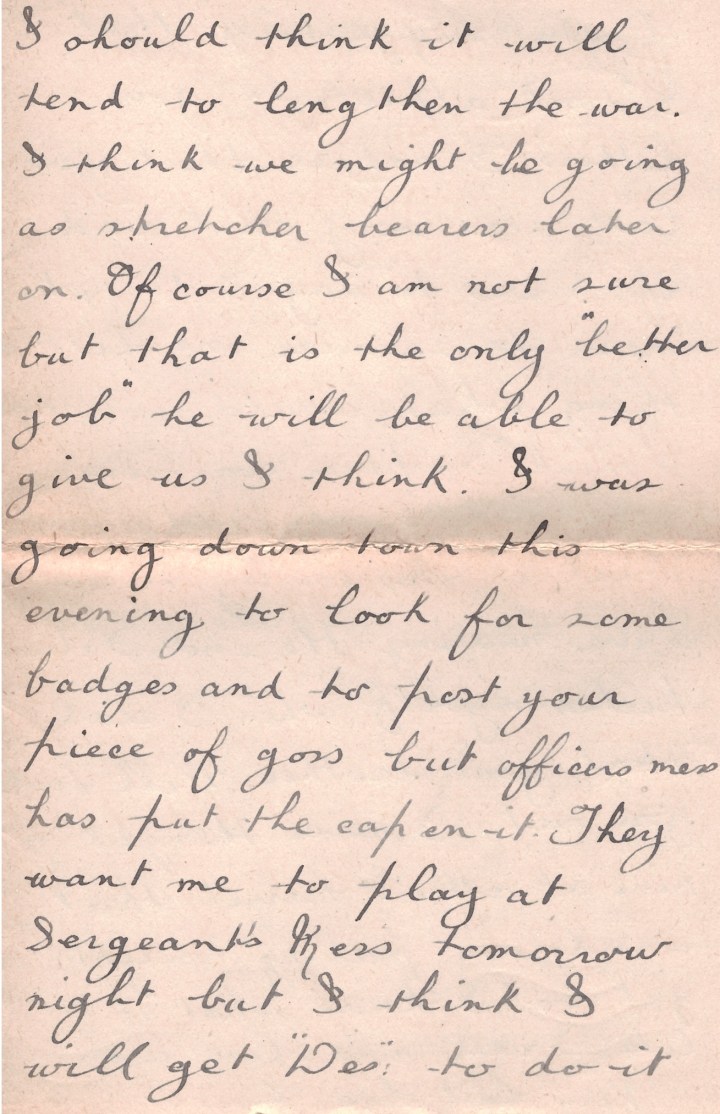 I should think it will
tend to lengthen the war.
I think we might be going
as stretcher bearers later
on. Of course I am not sure
but that is the only "better
job" he will be able to
give us I think. I was
going down town this
evening to look for some
badges and to post your
piece of goss but officers mess
has put the cap on it. They
want me to play at
Sergeant's Mess tomorrow
night but I think I
will get "Des". to do it